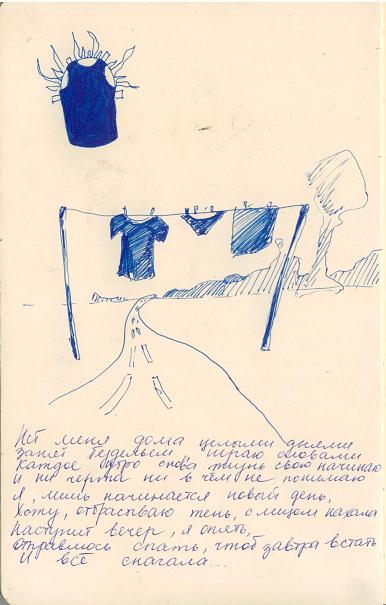 Нет меня дома целыми днями
занят бездельем, играю словами
Каждое утро снова жизнь свою начинаю
и ни черта ни в чём не понимаю
Я, лишь начинается новый день,
Хожу, отбрасываю тень, с лицом нахала
Наступит вечер, я опять,
отправлюсь спать, чтоб завтра встать
И всё сначала...